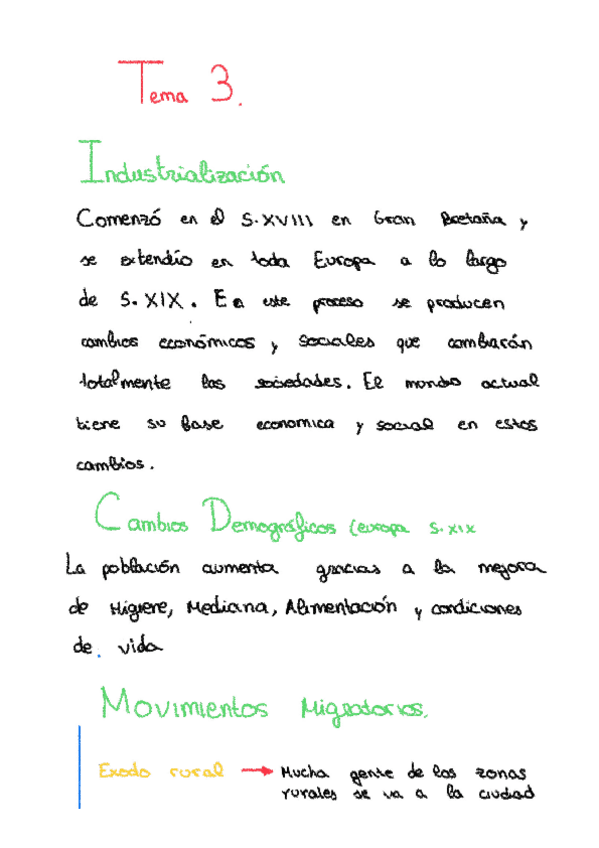 Tema 3.
Industrialización
Comenzó en el S.XVIII en Gran Bretaña y
se extendío en toda Europa a lo largo
de S.XIX. En este proceso se producen
cambios económicos y sociales que cambiarán
totalmente las sociedades. El mundo actual
tiene su base economica y social en estos
cambios.
Cambios Demográficos (europa S.XIX
La población aumenta gracias a la mejora
de Higiene, Medicina, Alimentación y condiciones
de vida
Movimientos Migratorios.
Exodo rural → Mucha gente de las zonas
rurales se va a la ciudad